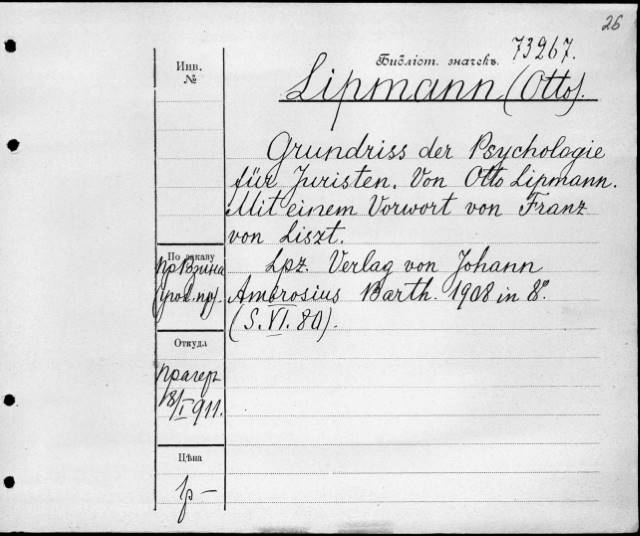 26
Библіот. значекъ. 73267.
Инв.
№
Lipmann (Otto).
Grundriss der Psychologie
für Juristen. Von Otto Lipmann.
Mit einem Vorwort von Franz
von Liszt.
Lpz. Verlag von Johann
Ambrosius Barth. 1908 in 8º
(S. VI. 80).
По заказу
пр
(угол. пр).
Откуда
Прагеръ
18/I 911.
Цѣна
1р –